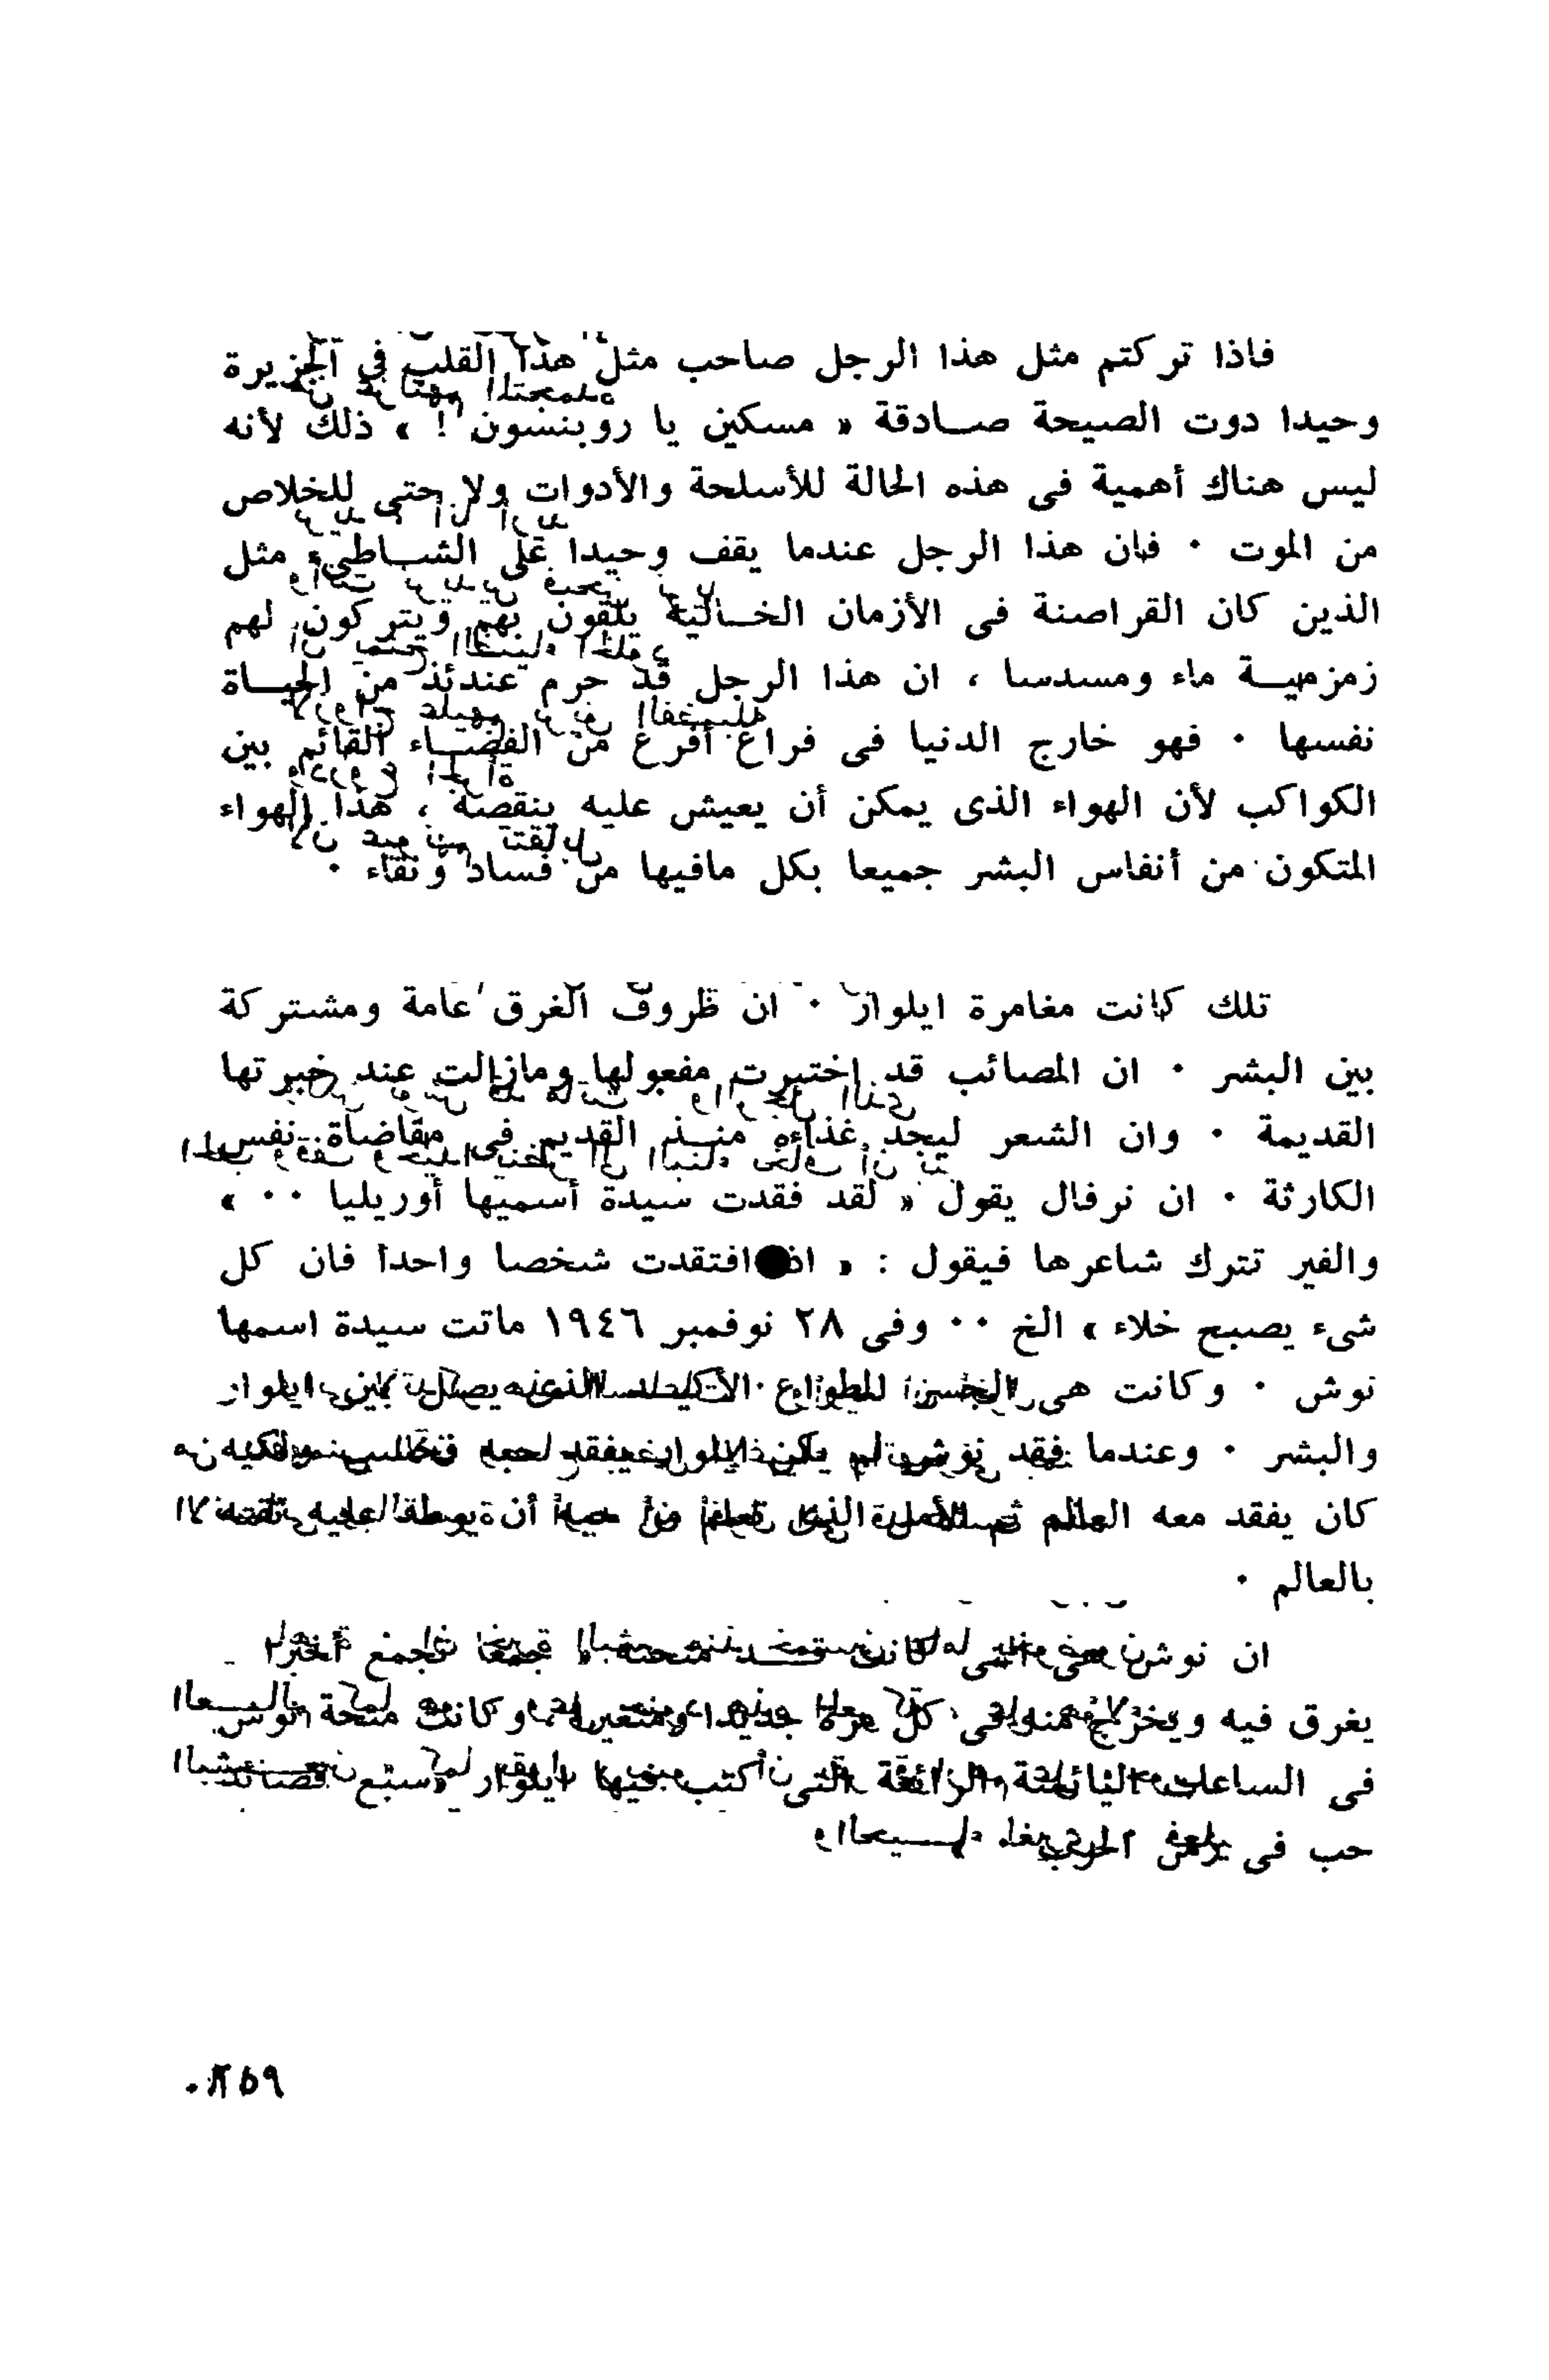 فاذا تركتم مثل هذا الرجل صاحب مثل هذا القلب في الجزيرة
وحيدا دوت الصيحة صادقة « مسكين يا روبنسون ! » ذلك لأنه
ليس هناك أهمية فى هذه الحالة للأسلحة والأدوات ولا حتى للخلاص
من الموت ٠ فان هذا الرجل عندما يقف وحيدا على الشاطىء مثل
الذين كان القراصنة فى الأزمان الخالية يلقون بهم ويتركون لهم
زمزمية ماء ومسدسا ، ان هذا الرجل قد حرم عندئذ من الحياة
نفسها ٠ فهو خارج الدنيا فى فراغ أفرغ من الفضاء القائم بين
الكواكب لأن الهواء الذى يمكن أن يعيش عليه ينقصه ، هذا الهواء
المتكون من أنفاس البشر جميعا بكل مافيها من فساد ونقاء ٠
تلك كانت مغامرة ايلوار ٠ ان ظروف الغرق عامة ومشتركة
بين البشر ٠ ان المصائب قد اختبرت مفعولها ومازالت عند خبرتها
القديمة ٠ وان الشعر ليجد غذاءه منذ القديم فى مقاضاة نفس
الكارثة ٠ ان نرفال يقول « لقد فقدت سيدة أسميها أوريليا ٠٠ »
والغير تترك شاعرها فيقول : « اذ افتقدت شخصا واحدا فان كل
شىء يصبح خلاء » الخ ٠٠ وفى ٢٨ نوفمبر ١٩٤٦ ماتت سيدة اسمها
نوش ٠ وكانت هى بين ايلوار
والبشر ٠ وعندما فقد نوش لم يكن ايلوار يفقد حبه
كان يفقد معه العالم ثم الأمل الذى ثقته
بالعالم ٠
ان نوش هى التى كانت قد منحته
يغرق فيه ويخرج منه فى كل مرة جديدا ومتغيرا ، وكانت منحة نوش
فى الساعات الرائعة التى كتب فيها ايلوار « سبع قصائد
حب فى زمن الحرب
٢٥٩